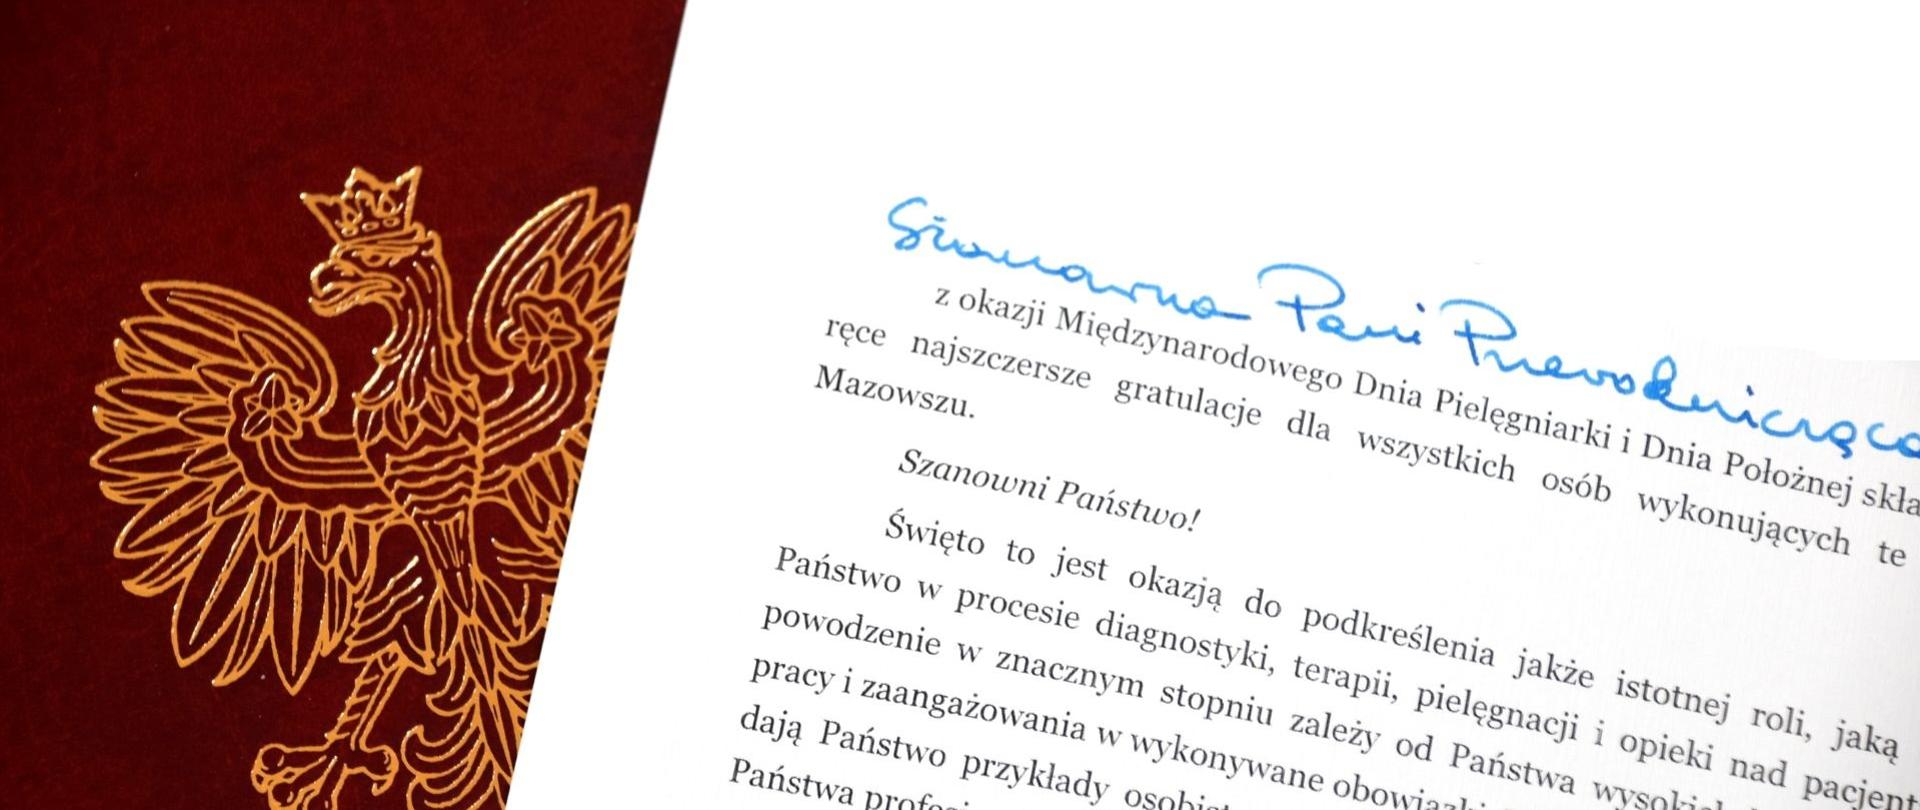 Szanowna Pani Przewodnicząca
z okazji Międzynarodowego Dnia Pielęgniarki i Dnia Położnej skła
ręce najszczersze gratulacje dla wszystkich osób wykonujących te
Mazowszu.
Szanowni Państwo!
Święto to jest okazją do podkreślenia jakże istotnej roli, jaką
Państwo w procesie diagnostyki, terapii, pielęgnacji i opieki nad pacjent
powodzenie w znacznym stopniu zależy od Państwa wysokich
pracy i zaangażowania w wykonywane obowiązki
dają Państwo przykłady osobist
Państwa profesj